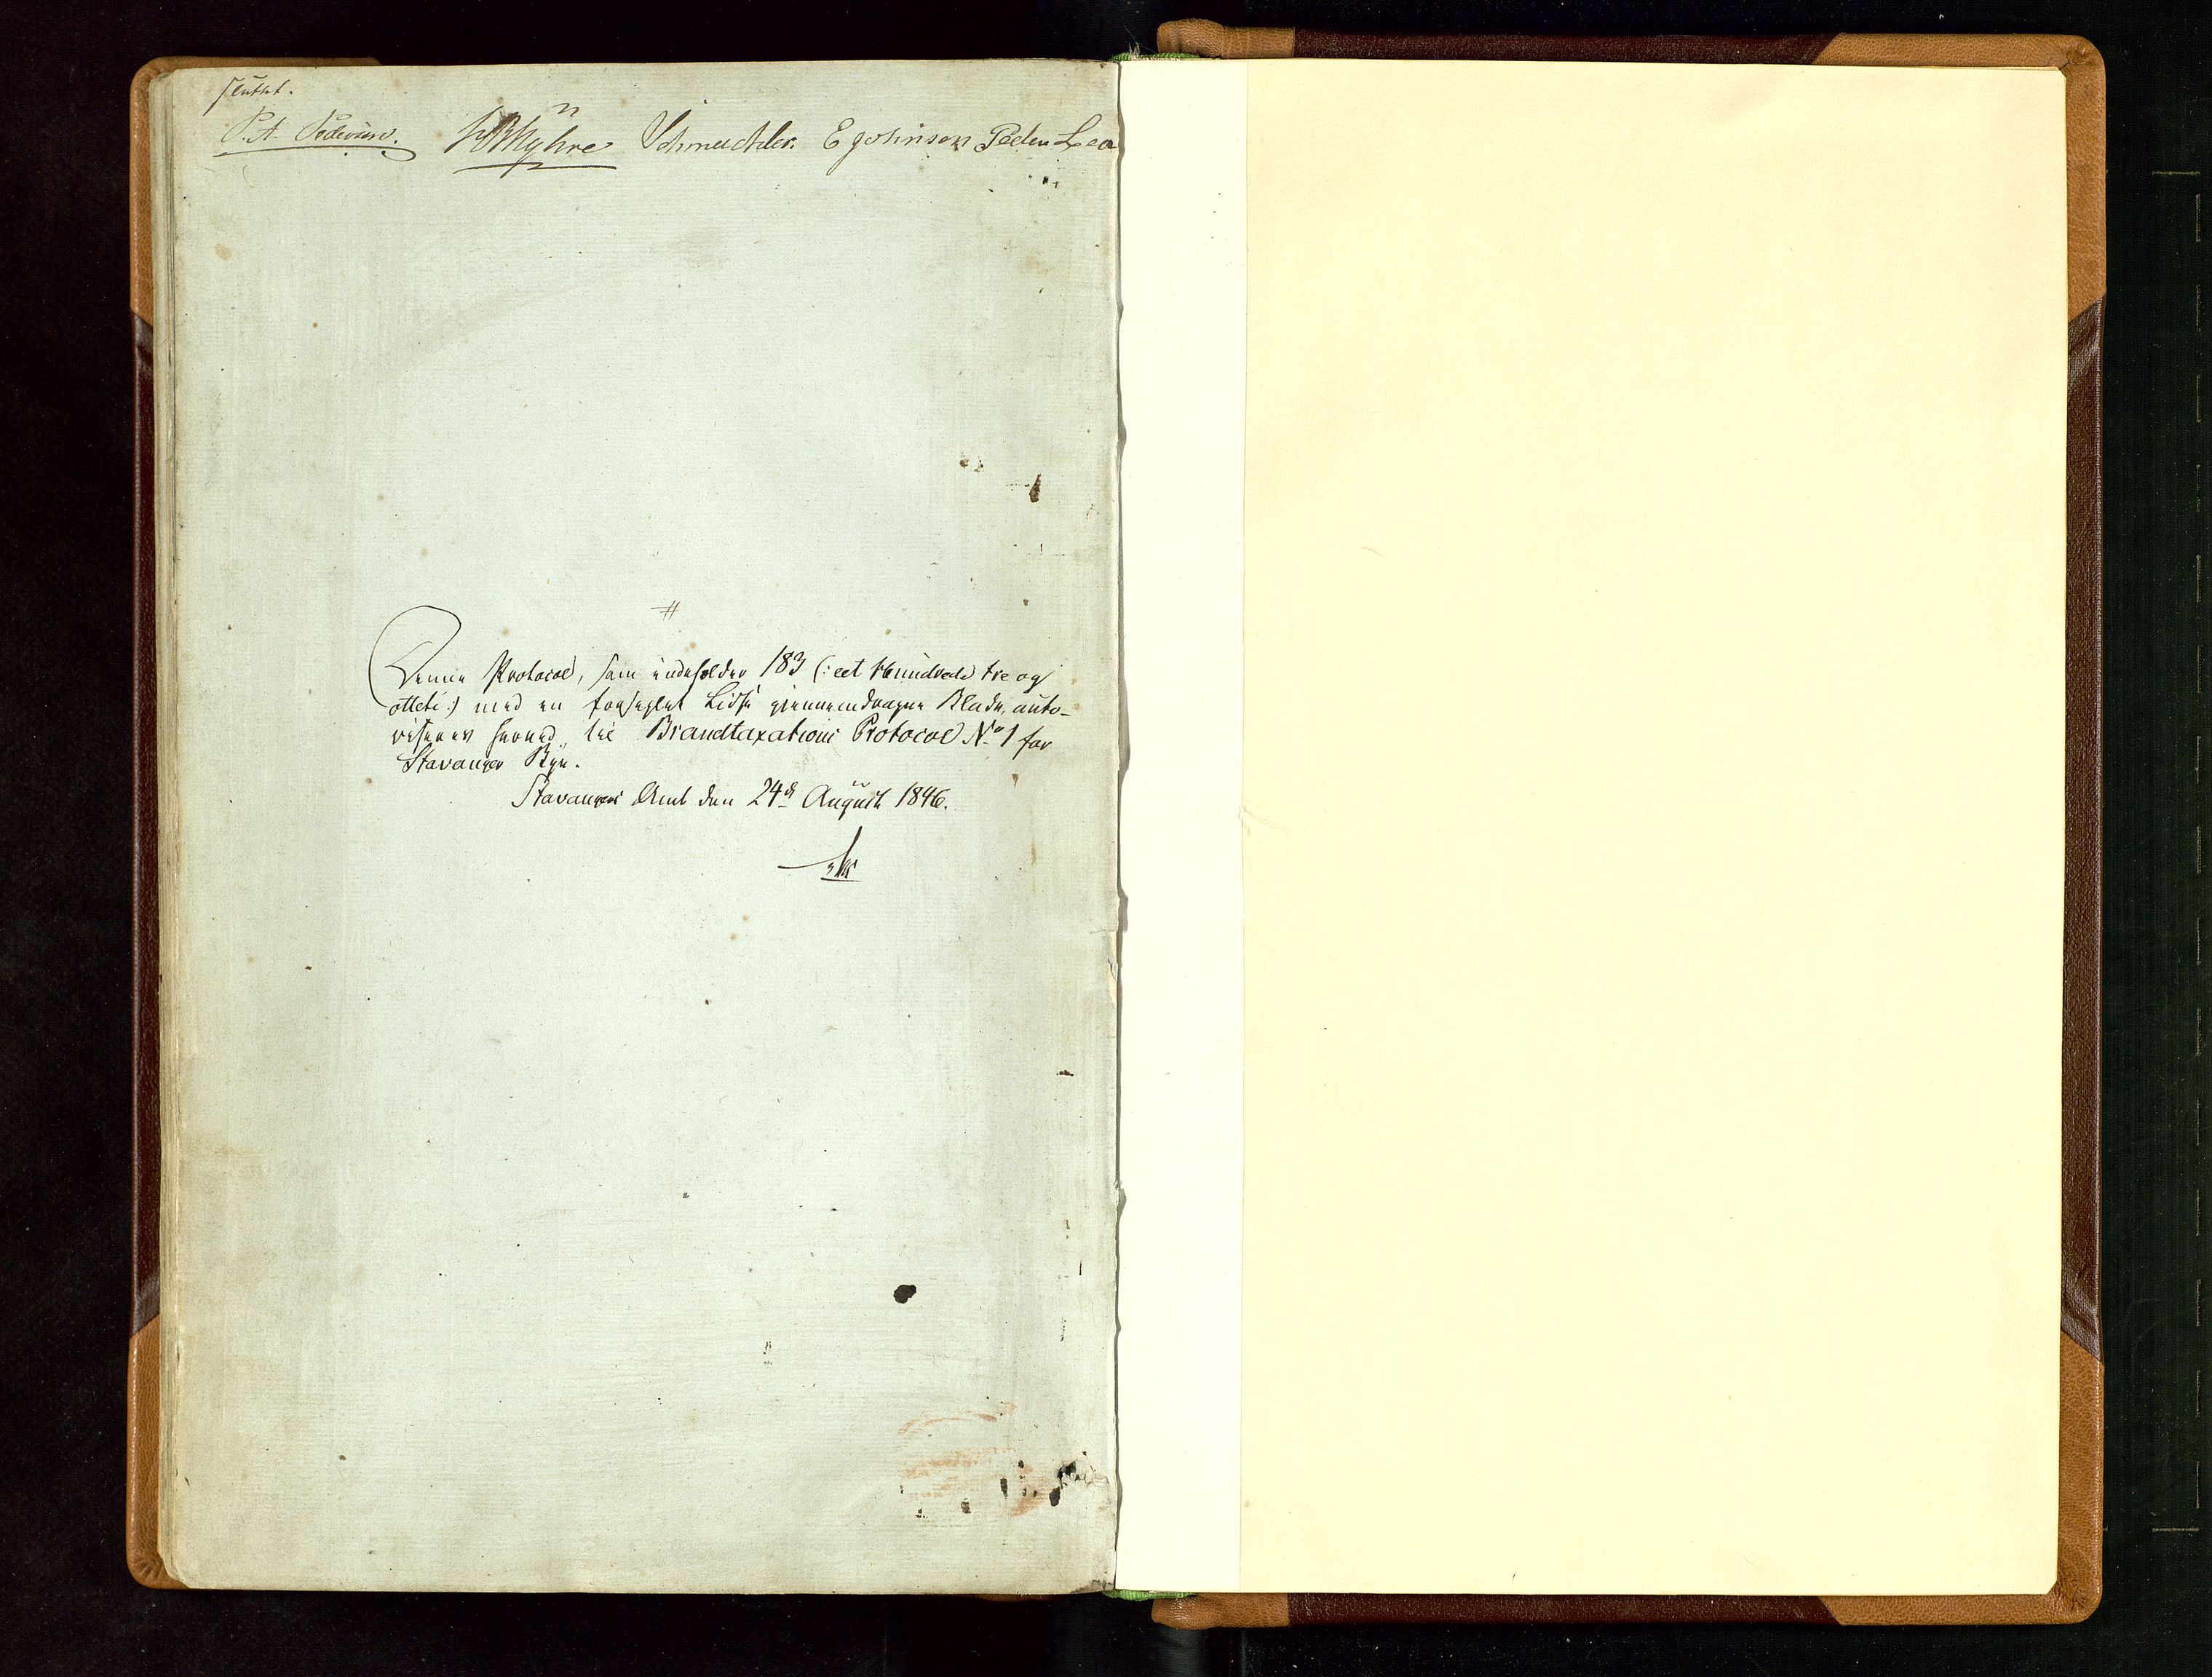 sluttet.
P. A. Pedersen. Myhre Schmeckler. E Johnson Peder Lea
Denne Protocol, som indeholder 183 (: eet Hundrede tre og
otteti :) med en forseglet Lidse giennemdragne Blade, auto-
riseres herved til Brandtaxations Protocol No 1 for
Stavanger Bye.
Stavanger Amt den 24de August 1846.